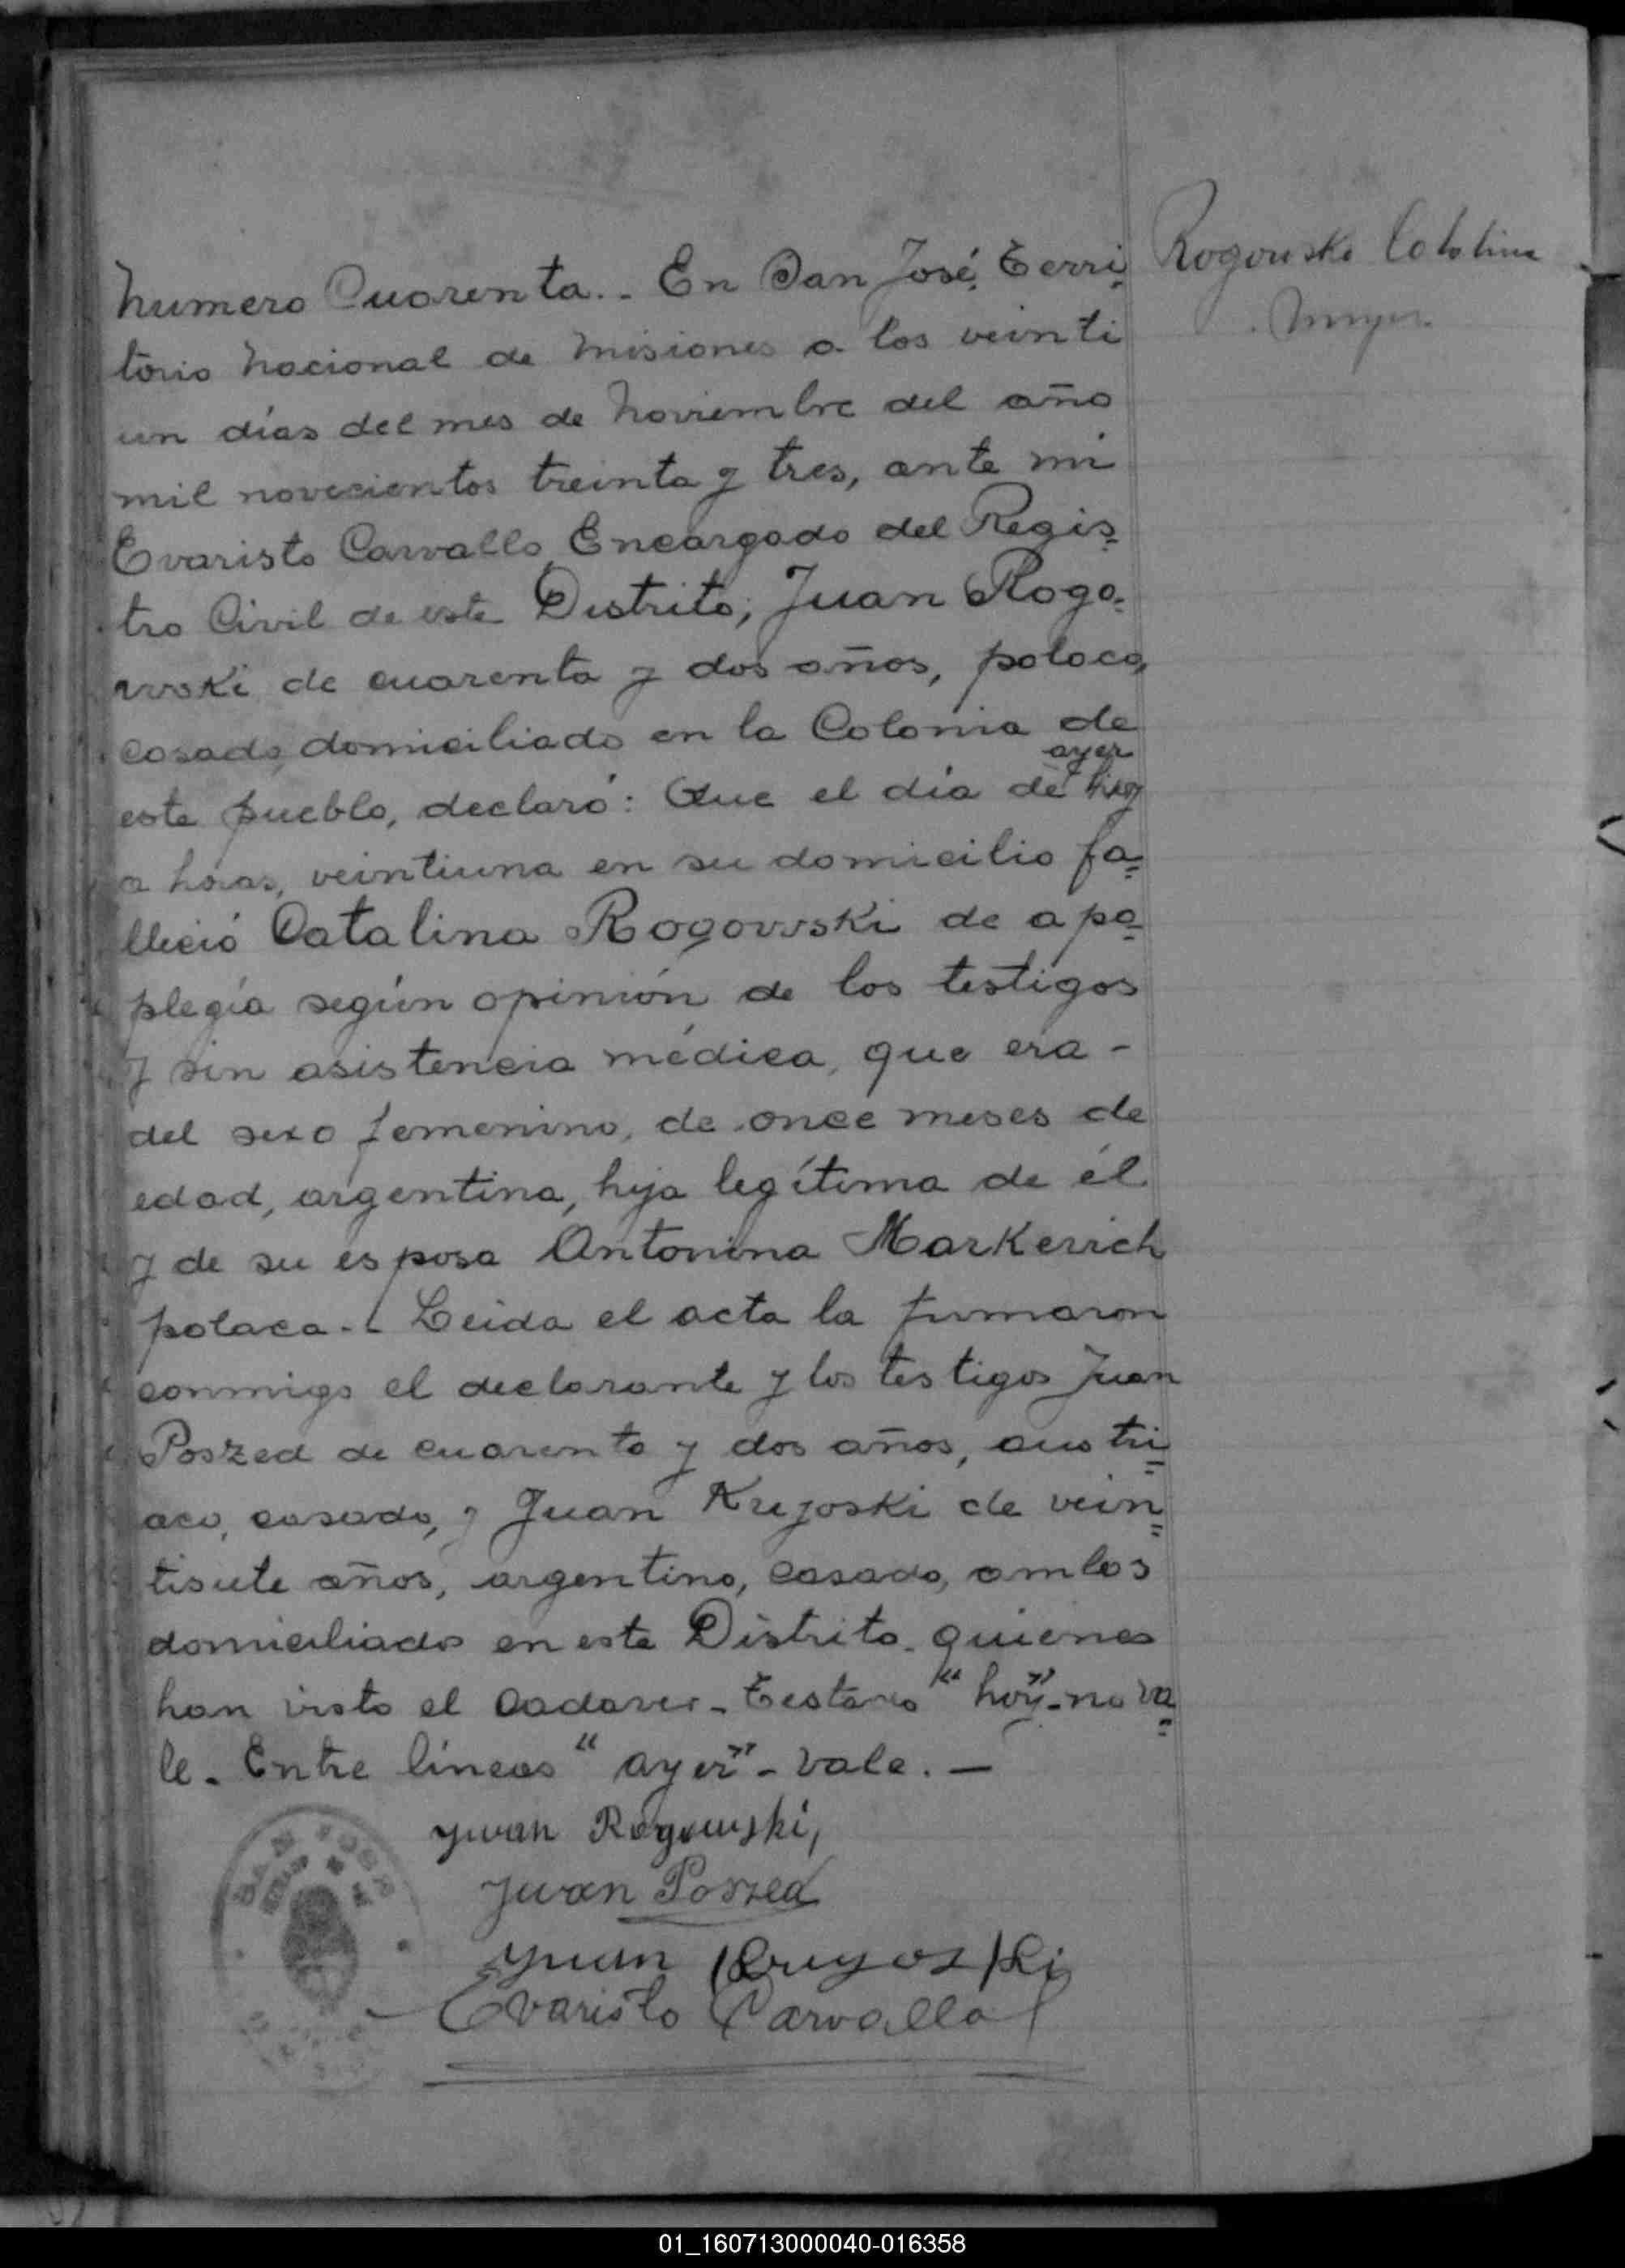 Rogouski Catalina
Mujer.
Numero Cuarenta.- En San José, Terri-
torio Nacional de Misiones a los veinti
un días del mes de Noviembre del año
mil novecientos treinta y tres, ante mi
Evaristo Carvallo, Encargado del Regis-
tro Civil de este Distrito; Juan Rogo-
wski de cuarenta y dos años, polaco,
casado, domiciliado en la Colonia de
ayer
este pueblo, declaró: Que el día de hoy
a horas, veintiuna en su domicilio fa-
lleció Catalina Rogowski de apo-
plegía según opinión de los testigos
y sin asistencia médica, que era -
del sexo femenino, de once meses de
edad, argentina, hija legítima de él
y de su esposa Antonina Markevich
polaca.- Leida el acta la firmaron
conmigo el declarante y los testigos Juan
Poszed de cuarenta y dos años, austri-
aco, casado, y Juan Krujoski de vein-
tisiete años, argentino, casado, ambos
domiciliados en este Distrito. quienes
han visto el cadaver - Testado "hoy"- no va-
le. Entre líneas "ayer" - vale. —
Juan Rogowski,
Juan Poszed
Juan Kruyoski
Evaristo Carvallo
SAN JOSE
01_160713000040-016358